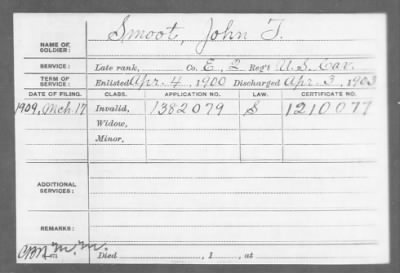 NAME OF SOLDIER: Smoot, John T.
SERVICE: Late rank, Co. E, 2 Reg't U.S. Cav.
TERM OF SERVICE: Enlisted Apr. 4, 1900 Discharged Apr. 3, 1903
DATE OF FILING. CLASS. APPLICATION NO. LAW. CERTIFICATE NO.
1909, Mch. 17 Invalid, 1382079 S 1210077
Widow,
Minor,
ADDITIONAL SERVICES:
REMARKS:
Died , 1 , at